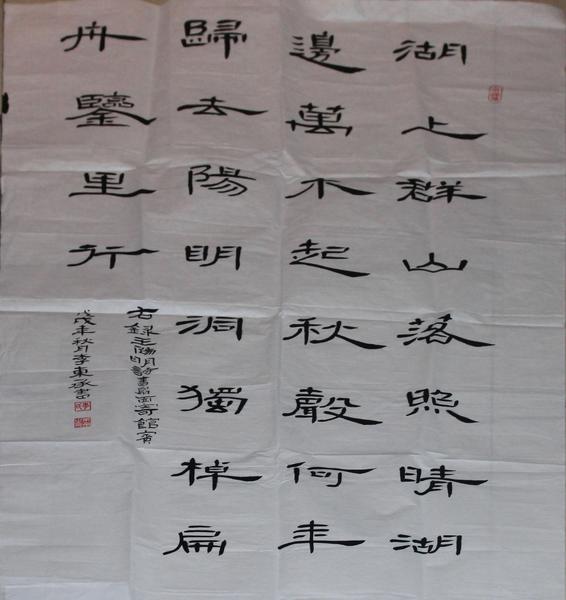 湖上群山落照晴湖
邊萬木起秋聲何年
歸去陽明洞獨棹扁
舟鑒里行
右錄王陽明詩書館
戊戌年秋月李東承書